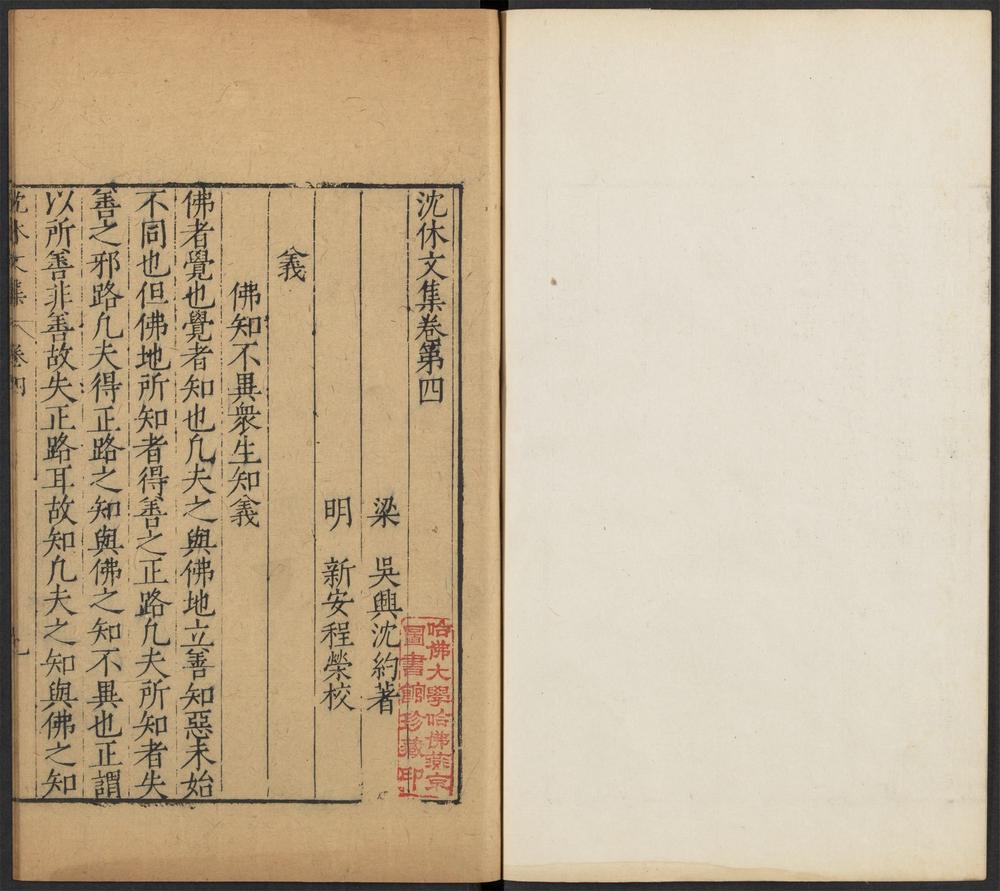 沈休文集卷第四
梁　吳興沈約著
明　新安程榮校
義
佛知不異衆生知義
佛者覺也覺者知也凡夫之與佛地立善知惡未始
不同也但佛地所知者得善之正路凡夫所知者失
善之邪路凡夫得正路之知與佛之知不異也正謂
以所善非善故失正路耳故知凡夫之知與佛之知
沈休文集
卷四
哈佛大學哈佛燕京
圖書館珍藏印